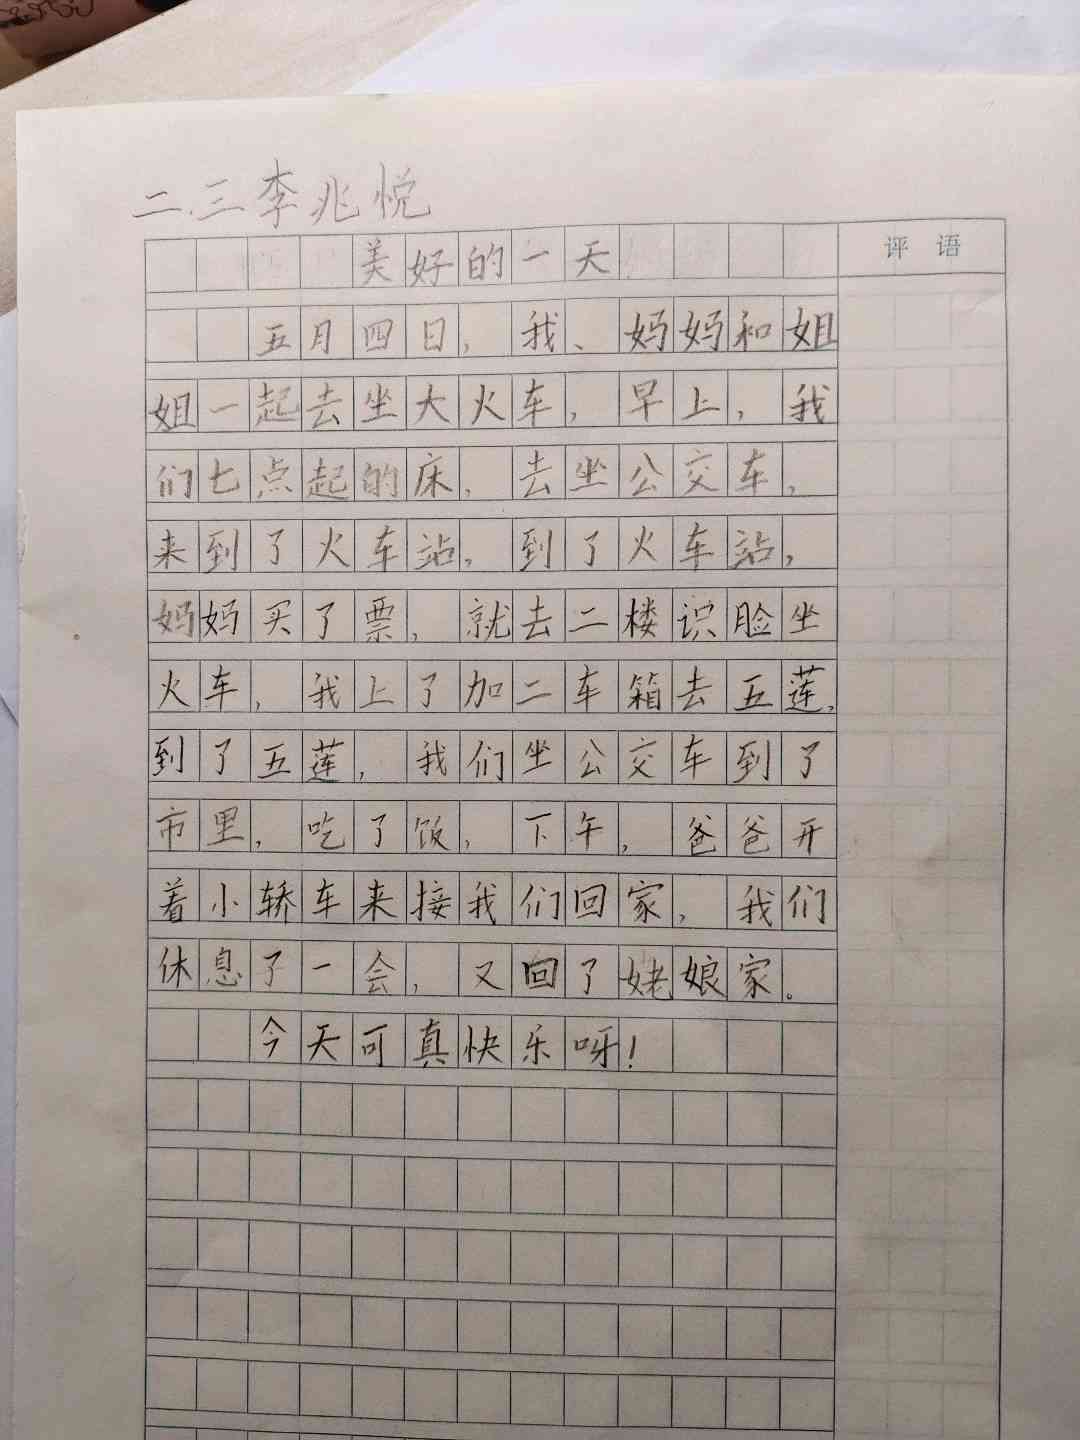 二.三李兆悦
美好的一天
评语
五月四日，我、妈妈和姐
姐一起去坐大火车，早上，我
们七点起的床，去坐公交车，
来到了火车站，到了火车站，
妈妈买了票，就去二楼识脸坐
火车，我上了加二车箱去五莲，
到了五莲，我们坐公交车到了
市里，吃了饭，下午，爸爸开
着小轿车来接我们回家，我们
休息了一会，又回了姥娘家。
今天可真快乐呀！